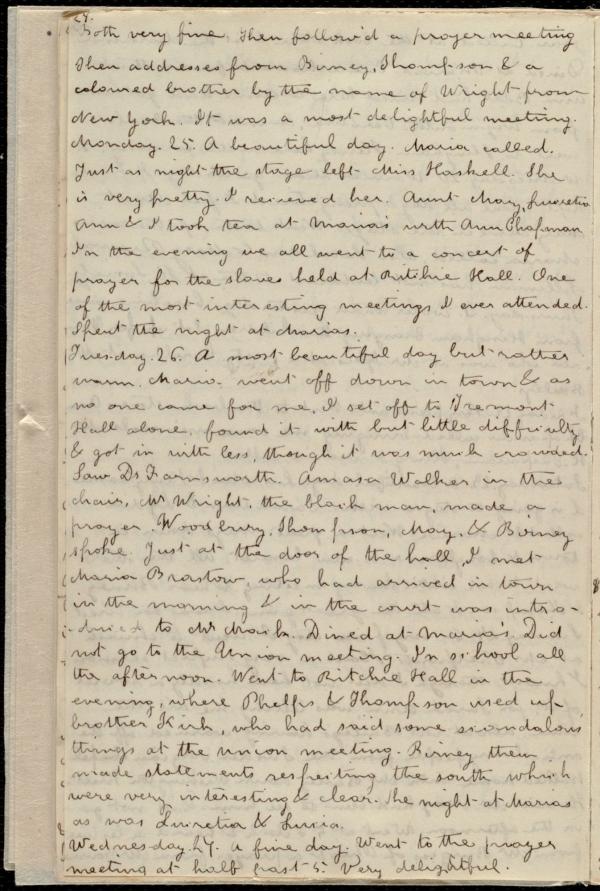 29.
Both very fine, then follow'd a prayer meeting
then addresses from Birney, Thompson & a
coloured brother by the name of Wright from
New York. It was a most delightful meeting.
Monday. 25. A beautiful day. Maria called.
Just as night the stage left Miss Haskell. She
is very pretty. I received her. Aunt Mary, Lucretia
Ann & I took tea at Maria's with Ann Chapman
In the evening we all went to a concert of
prayer for the slaves held at Ritchie Hall. One
of the most interesting meetings I ever attended.
Spent the night at Marias.
Tuesday. 26. A most beautiful day but rather
warm. Maria went off down in town & as
no one came for me, I set off to Tremont
Hall alone, found it with but little difficulty
& got in with less, though it was much crowded.
Saw Dr Farnsworth. Amasa Walker in the
chair, Mr Wright, the black man, made a
prayer. Woodbury, Thompson, May, & Birney
spoke. Just at the door of the hall, I met
Maria Brastow, who had arrived in town
in the morning & in the court was intro-
duced to Mr. Dined at Maria's. Did
not go to the Union meeting. In school all
the afternoon. Went to Ritchie Hall in the
evening, where Phelps & Thompson used up
brother Kirk, who had said some scandalous
things at the union meeting. Birney then
made statements respecting the south which
were very interesting & clear. The night at Marias
as was Lucretia & Lucia.
Wednesday. 27. A fine day. Went to the prayer
meeting at half past 5. Very delightful.